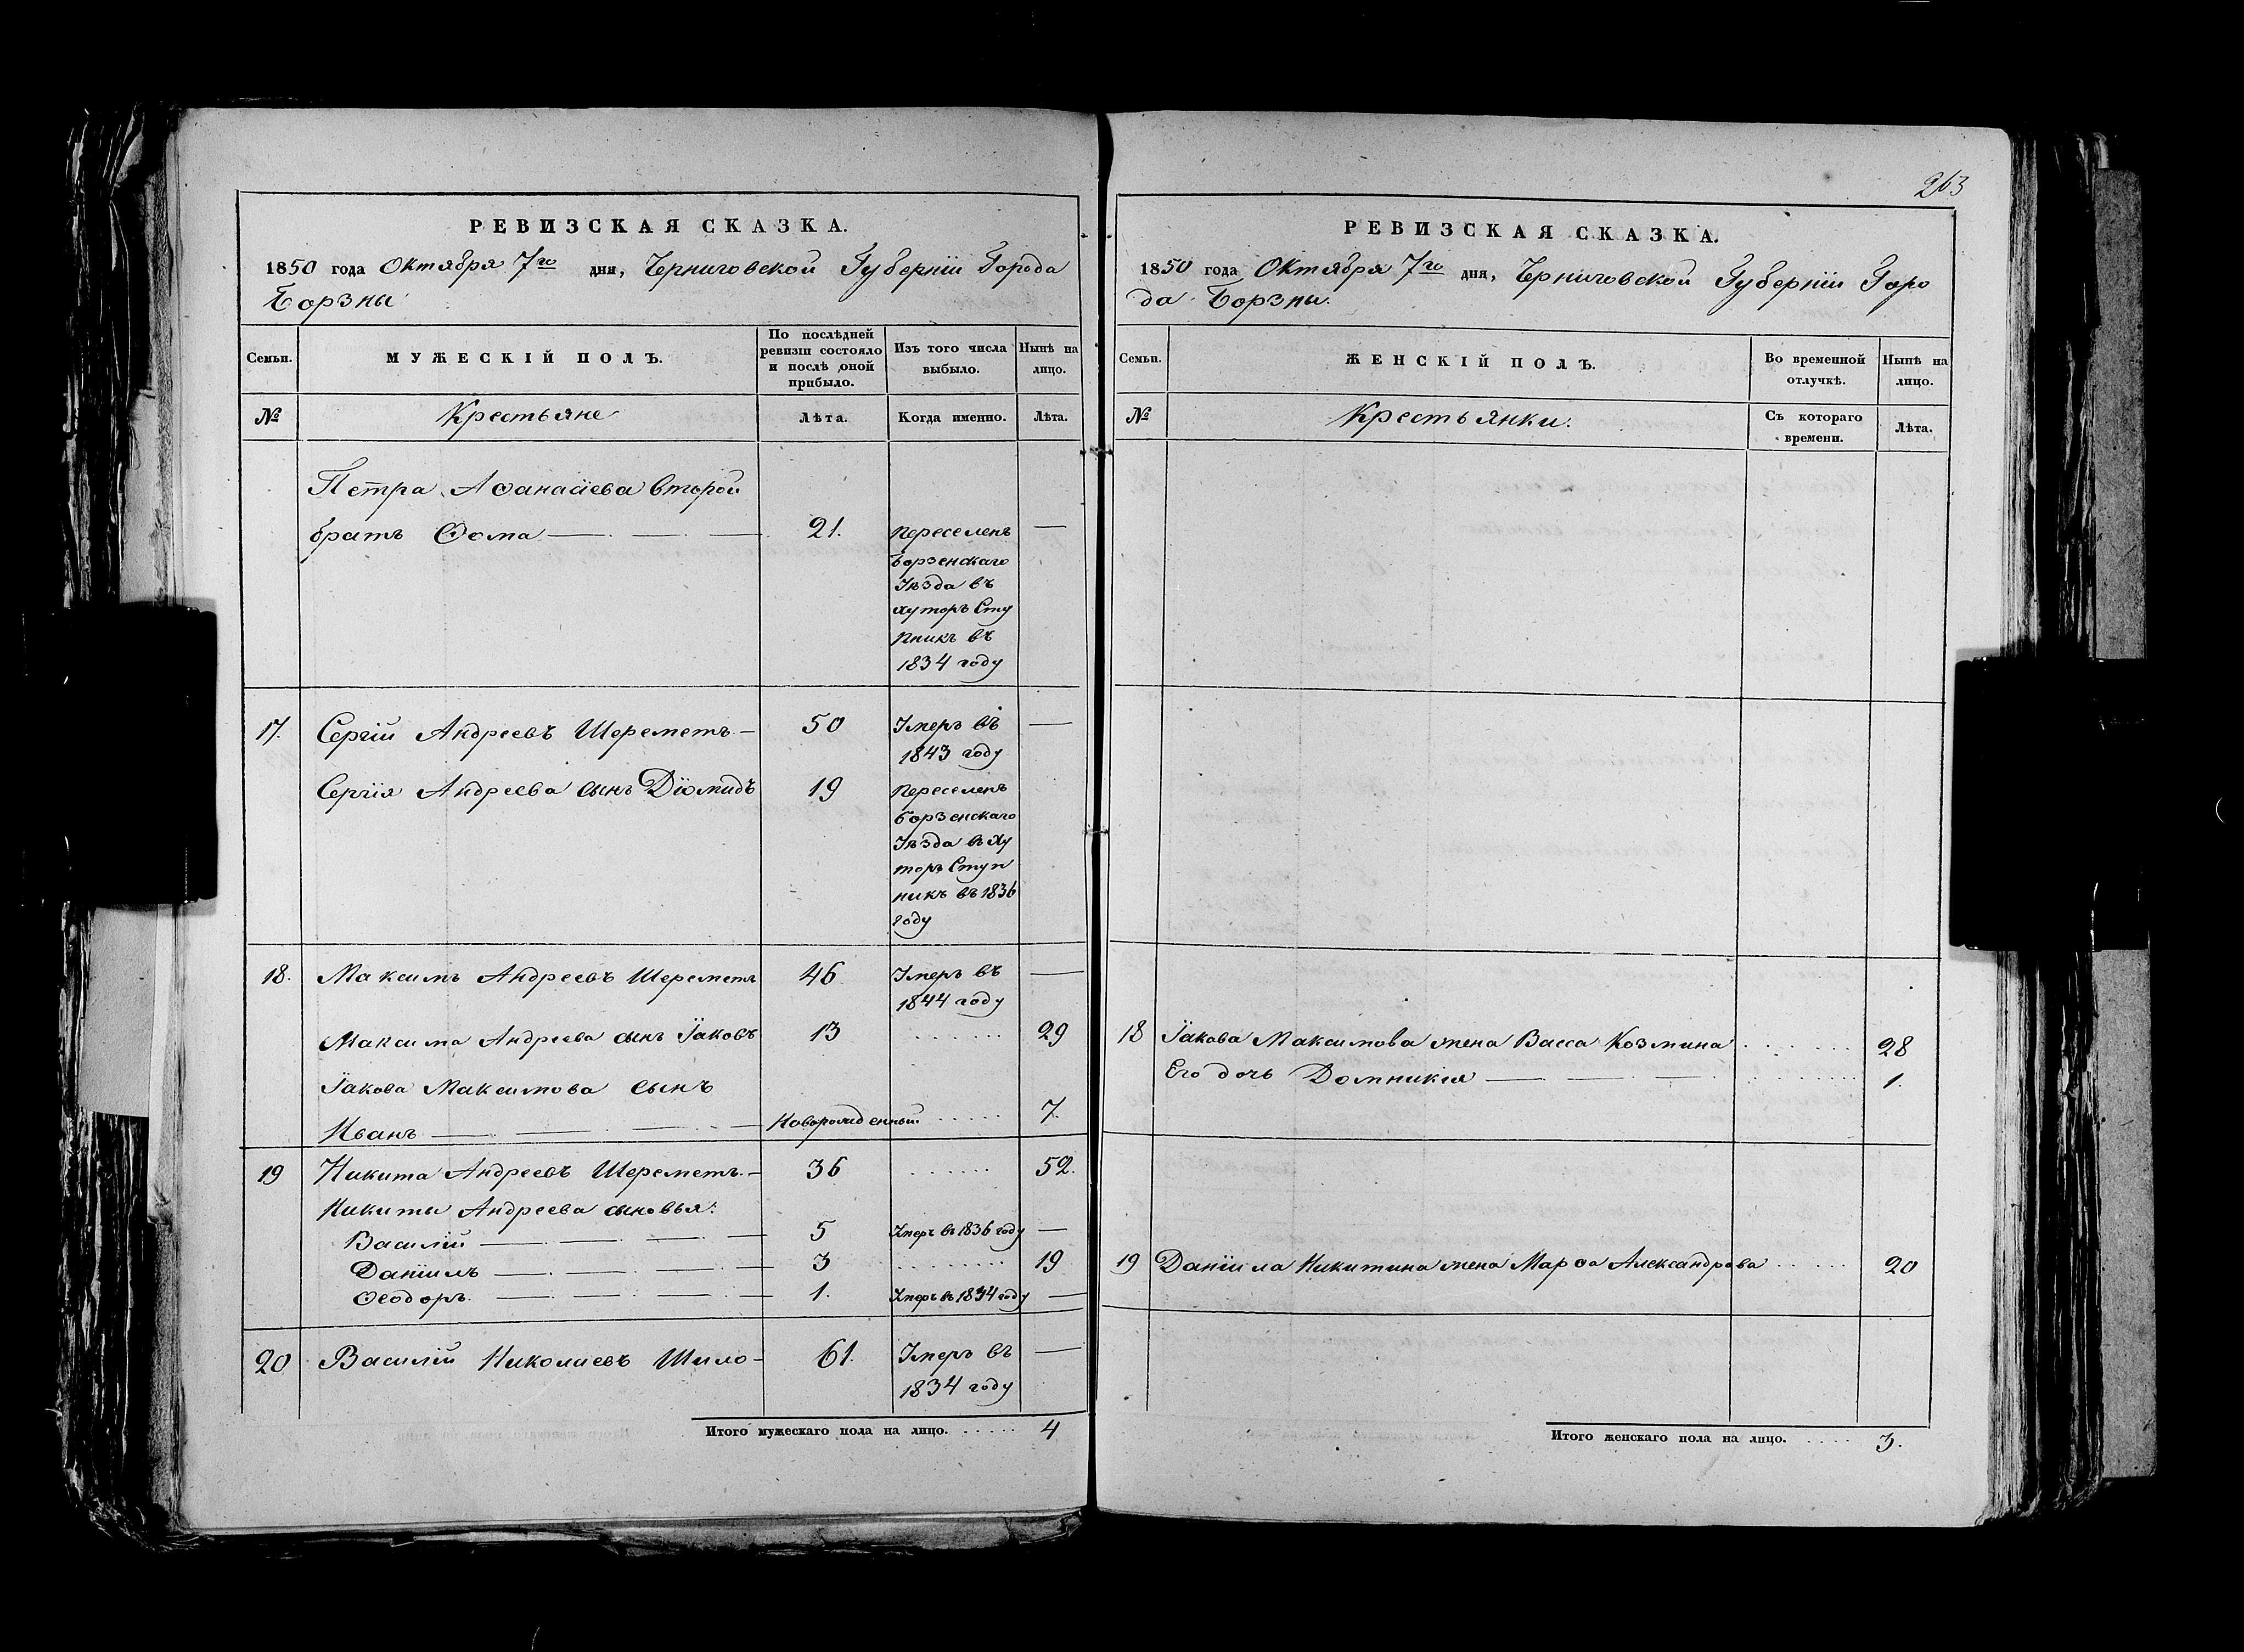 РЕВИЗСКАЯ СКАЗКА.
1850 года Октября 7го дня, Черниговской Губерніи Города
Борзны
Семьи.
МУЖЕСКІЙ ПОЛЪ.
По послѣдней
ревизіи состояло
и послѣ оной
прибыло.
Изъ того числа
выбыло.
Нынѣ на
лицо.
№
Крестьяне
Лѣта.
Когда именно.
Лѣта.
Петра Аѳанасіева второй
братъ Ѳома — . — . — 21. Переселенъ —
Борзенскаго
Уѣзда въ
хуторъ Сту
пникъ въ
1834 году
17. Сергій Андреевъ Шереметъ — 50 Умеръ въ —
1843 году
Сергія Андреева сынъ Діомидъ 19 Переселенъ
Борзенскаго
Уѣзда въ Ху
торъ Ступ
никъ въ 1836
году
18. Максимъ Андреевъ Шереметъ 46 Умеръ въ —
1844 году
Максима Андреева сынъ Іаковъ 13 . . . . . . 29
Іакова Максимова сынъ
Иванъ — . — . — . — Новорожденный . . . . . 7.
19 Никита Андреевъ Шереметъ. — 36 . . . . . . 52.
Никиты Андреева сыновья:
Василій — . — . — . — 5 Умеръ въ 1836 году —
Даніилъ — . — . — . — 3 . . . . . . . . 19
Ѳеодоръ. — . — . — . — 1. Умеръ въ 1834 году —
20 Василій Николаевъ Шило — 61. Умеръ въ —
1834 году
Итого мужескаго пола на лицо. . . . . . 4
263
РЕВИЗСКАЯ СКАЗКА.
1850 года Октября 7го дня, Черниговской Губерніи Горо
да Борзны.
Семьи.
ЖЕНСКІЙ ПОЛЪ.
Во временной
отлучкѣ.
Нынѣ на
лицо.
№
Крестьянки.
Съ котораго
времени.
Лѣта.
18 Іакова Максимова жена Васса Козмина . . . . . . 28
Его дочь Домникія — . — . — . . . . . . . 1.
19 Даніила Никитина жена Марѳа Александрова . . . . . 20
Итого женскаго пола на лицо. . . . . 3.